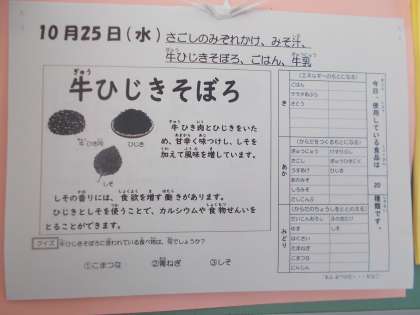 10月25日(水) さごしのみぞれかけ、みそ汁、
牛ひじきそぼろ、ごはん、牛乳
牛ひじきそぼろ
牛ひき肉とひじきをいた
め、甘辛く味つけし、しそを
加えて風味を増しています。
牛ひき肉
ひじき
しそ
しその香りには、食欲を増す働きがあります。
ひじきとしそを使うことで、カルシウムや食物せんいを
とることができます。
クイズ 牛ひじきそぼろに使われている食べ物は、何でしょうか?
①こまつな ②葉ねぎ ③しそ
今日、使用している食品は 20 種類です。
き
(エネルギーのもとになる)
ごはん
さとう
あか
(からだをつくるもとになる)
ぎゅうにゅう
さごし
ぎゅうひきにく
ひじき
あかみそ
しろみそ
みどり
(からだのちょうしをととのえる)
しそ
はくさい
たまねぎ
こまつな
にんじん